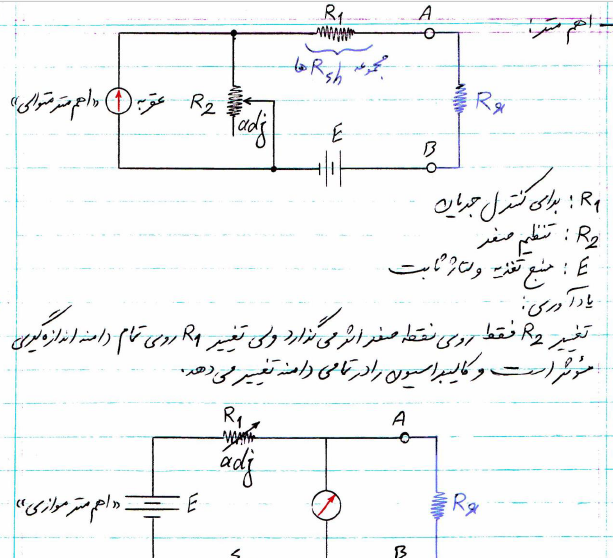 اهم متر:
R1
A
مجموعه Rsh ها
«اهم متر متوالی»
عقربه
R2
adj
Rx
E
B
R1 : برای کنترل جریان
R2 : تنظیم صفر
E : منبع تغذیه ولتاژ ثابت
یادآوری:
تغییر R2 فقط روی نقطه صفر اثر می‌گذارد ولی تغییر R1 روی تمام دامنه اندازه‌گیری
مؤثر است و کالیبراسیون را در تمامی دامنه تغییر می‌دهد.
R1
A
adj
«اهم متر موازی»
E
Rx
S
B